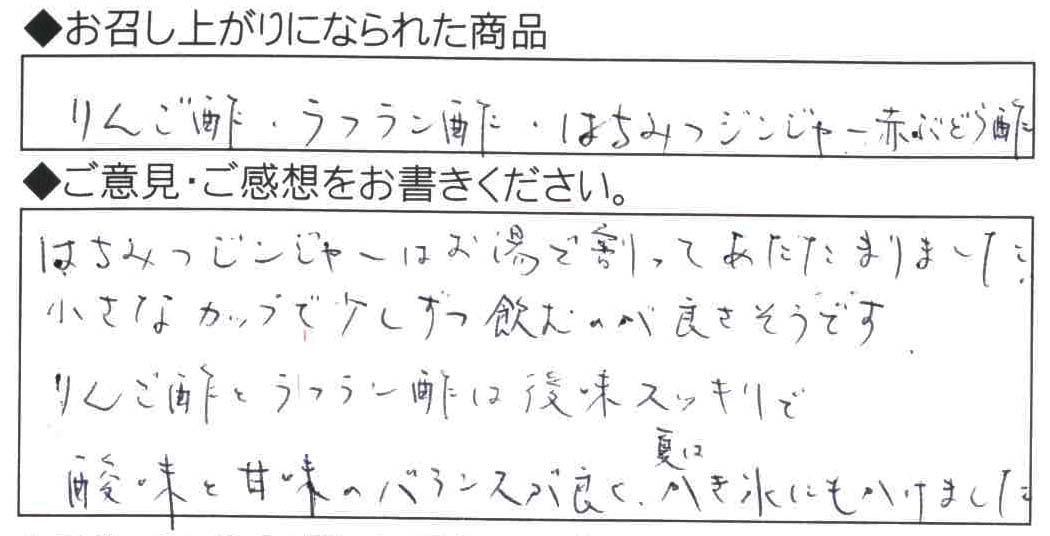 ◆お召し上がりになられた商品
りんご酢・うフラン酢・はちみつジンジャー赤ぶどう酢
◆ご意見・ご感想をお書きください。
はちみつジンジャーはお湯で割ってあたたまりました。
小さなカップで少しずつ飲むのが良さそうです.
りんご酢とうフラン酢は後味スッキリで
夏は
酸味と甘味のバランスが良く、かき氷にもかけました